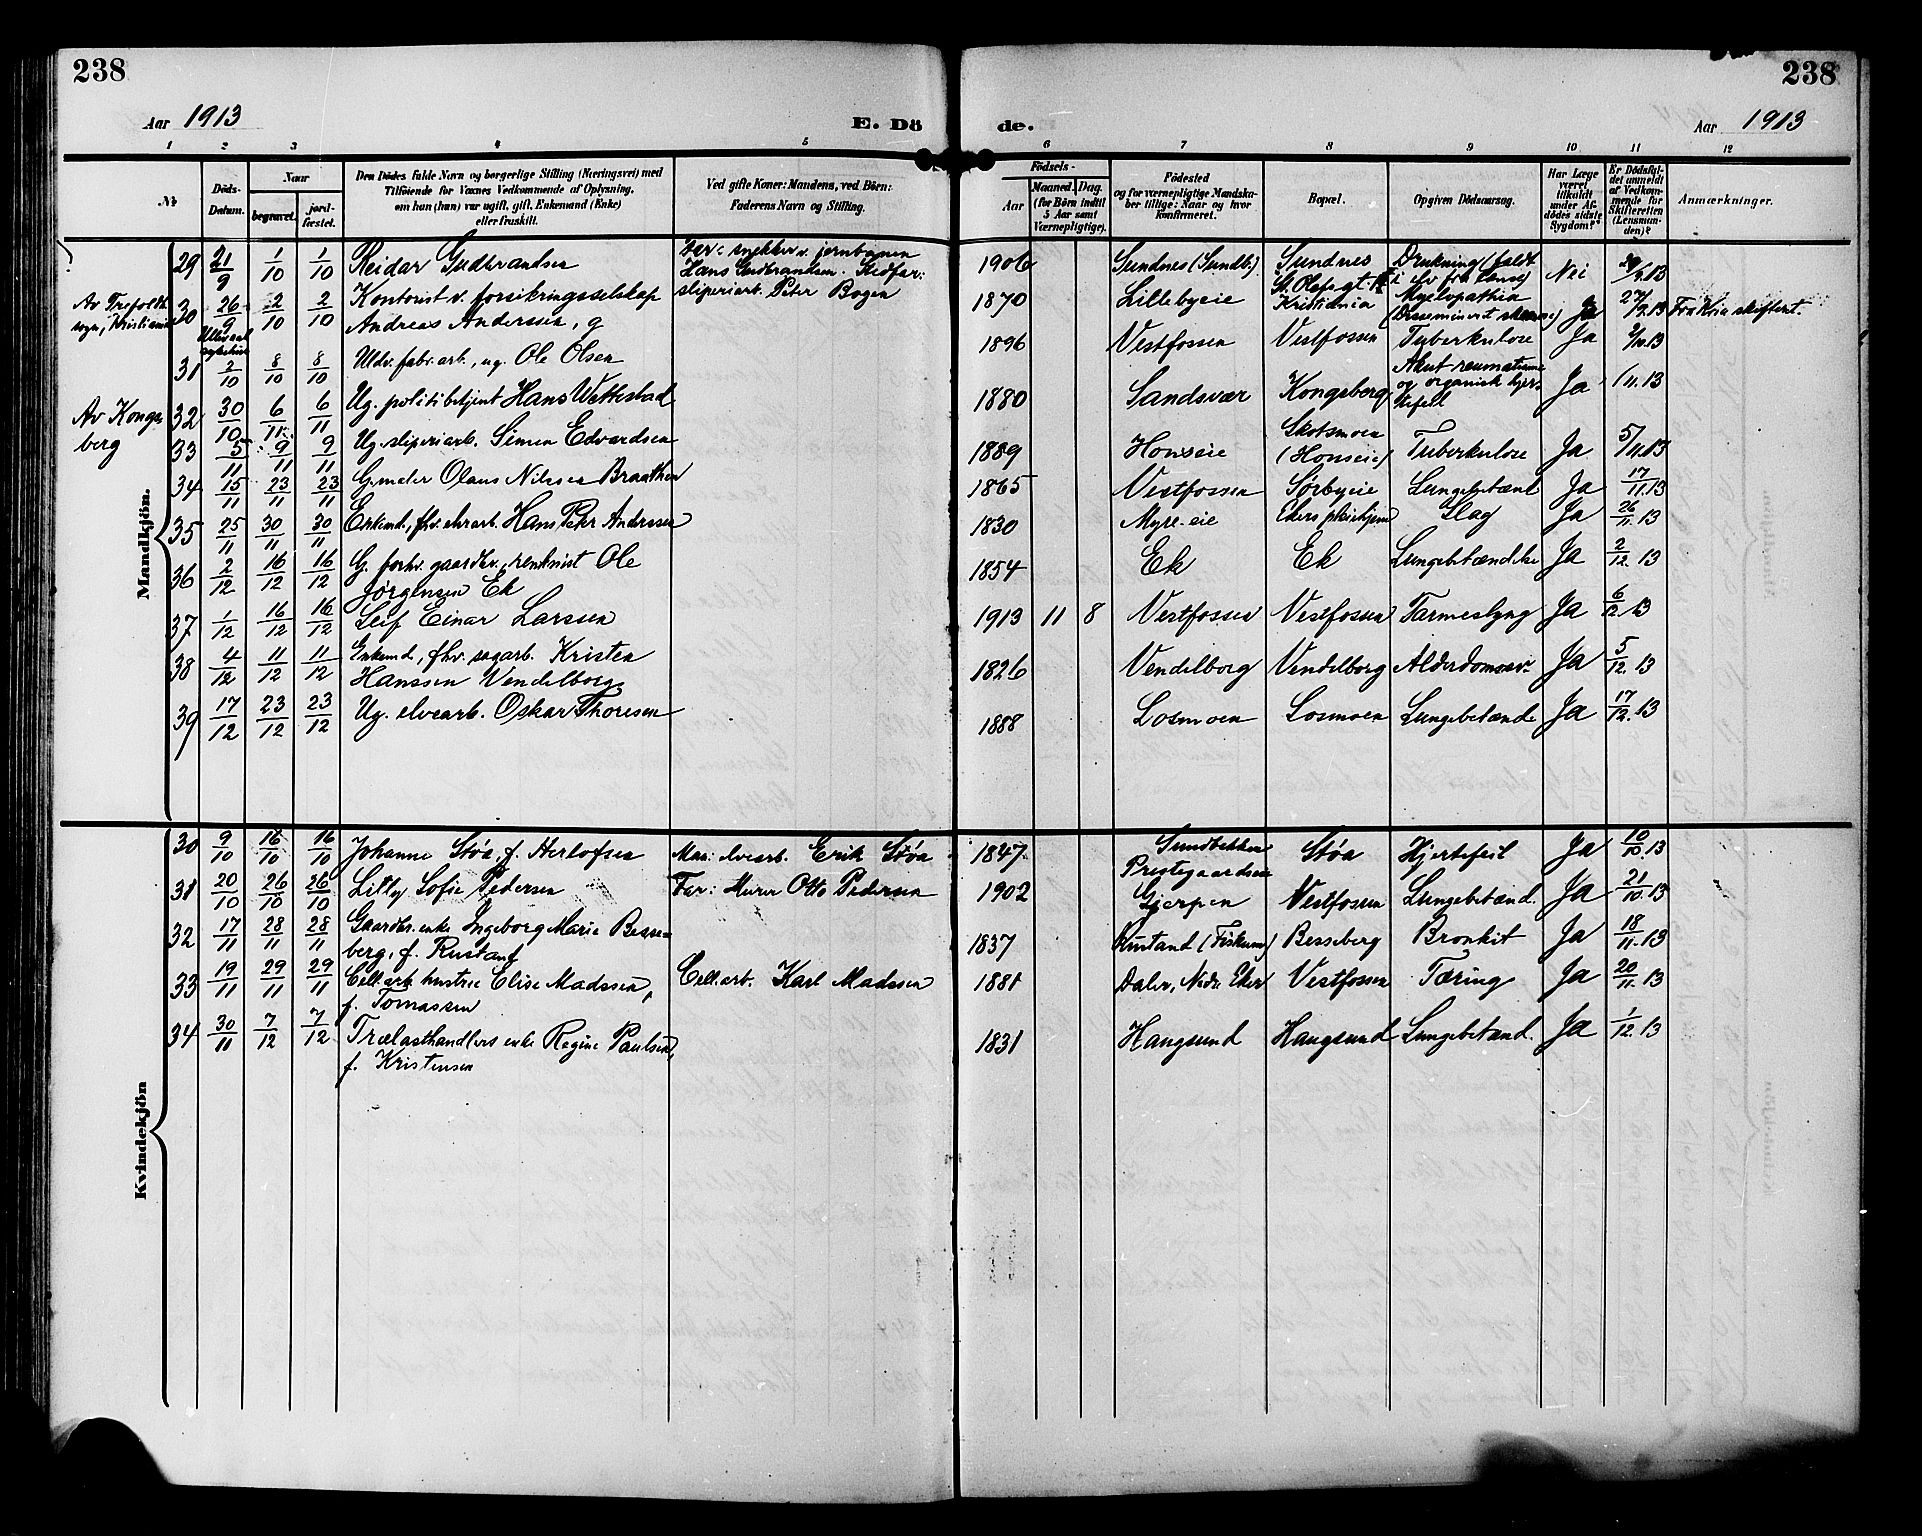 238
238
Aar 1913
E. Dö
de.
Aar 1913
1 2 3 4 5 6 7 8 9 10 11 12
№
Döds-Datum.
Naar
begravet.
jord-fæstet.
Den Dödes fulde Navn og borgerlige Stilling (Næringsvei) med
Tilföiende for Voxnes Vedkommende af Oplysning,
om han (hun) var ugift, gift, Enkemand (Enke)
eller fraskilt.
Ved gifte Koner: Mandens, ved Börn:
Faderens Navn og Stilling.
Födsels-
Aar
Maaned. Dag.
(for Börn indtil
5 Aar samt
Værnepligtige).
Födested
og for værnepligtige Mandska-
ber tillige: Naar og hvor
konfirmeret.
Bopæl.
Opgiven Dödsaarsag.
Har Læge
været
tilkaldt
under Af-
dödes sidste
Sygdom?
Er Dödsfal-
det anmeldt
af Vedkom-
mende for
Skifteretten
(Lensman-
den)?
Anmærkninger.
Mandkjön.
29 21/9 1/10 1/10 Reidar Gudbrandsen Far: snekker v. jernbanen
Hans Gudbrandsen. Stedfar:
sliperiarb. Peter Bogen 1906 Sundnes (Sundb.) Sundnes Drukning (faldt
i elv fra land) Nei
Av Trefoldh.
sogn, Kristiania 30 26/9 Ullevaal
sykehus 2/10 2/10 Kontorist v. forsikringsselskap
Andreas Anderssen, g 1870 Lillebyeie St. Olafs gt.
Kristiania Myelopathia Ja 27/9.13 Fra Kria skifteret.
31 2/10 8/10 8/10 Uldv. fabr. arb., ug. Ole Olsen 1896 Vestfossen Vestfossen Tuberkulose Ja 2/10.13
Av Kongs
berg 32 30/10 6/11 6/11 Ug. politibetjent Hans Wettestad 1880 Sandsvær Kongsberg Akut reumatisme
og organisk hjer-
tefeil Ja 1/11.13
33 5/11 9/11 9/11 Ug. sliperiarb. Simen Edvardsen 1889 Honseie Skotsmoen
(Honseie) Tuberkulose Ja 5/11.13
34 15/11 23/11 23/11 G. maler Olaus Nilssen Braathen 1865 Vestfossen Sørbyeie Lungebetænd Ja 17/11.13
35 25/11 30/11 30/11 Enkemd., fhv. elvearb. Hans Peter Anderssen 1830 Myre-eie Ekers pleiehjem Slag Ja 26/11.13
36 2/12 16/12 16/12 G. forhv. gaardbr., rentenist Ole
Jørgensen Ek 1854 Ek Ek Lungebetændelse Ja 2/12.13
37 1/12 16/12 16/12 Leif Einar Larssen 1913 11 8 Vestfossen Vestfossen Tarmeslyng Ja 6/12.13
38 4/12 11/12 11/12 Enkemd., fhv. sagarb. Kristen
Hanssen Vendelborg 1826 Vendelborg Vendelborg Alderdomssv. Ja 5/12.13
39 17/12 23/12 23/12 Ug. elvearb. Oskar Thoresen 1888 Losmoen Losmoen Lungebetænde Ja 17/12.13
Kvindekjön
30 9/10 16/10 16/10 Johanne Støa, f. Herlofsen Man: elvearb. Erik Støa 1847 Sundbakken
Prestegaardseie Støa Hjertefeil Ja 10/10.13
31 20/10 26/10 26/10 Lilly Sofie Pedersen Far: Murer Otto Pedersen 1902 Gjerpen Vestfossen Lungebetænd. Ja 21/10.13
32 17/11 28/11 28/11 Gaardbr. enke Ingeborg Marie Besse-
berg, f. Rustand 1837 Rustand (Fiskum) Besseberg Bronkit Ja 18/11.13
33 19/11 29/11 29/11 Cell. arb. hustru Elise Madssen,
f. Tomassen Cell. arb. Karl Madssen 1881 Daler, Nedre Eker Vestfossen Tæring Ja 20/11.13
34 30/11 7/12 7/12 Trælasthandlers enke Regine Paulsen,
f. Kristensen 1831 Haugsund Haugsund Lungebetænd. Ja 1/12.13